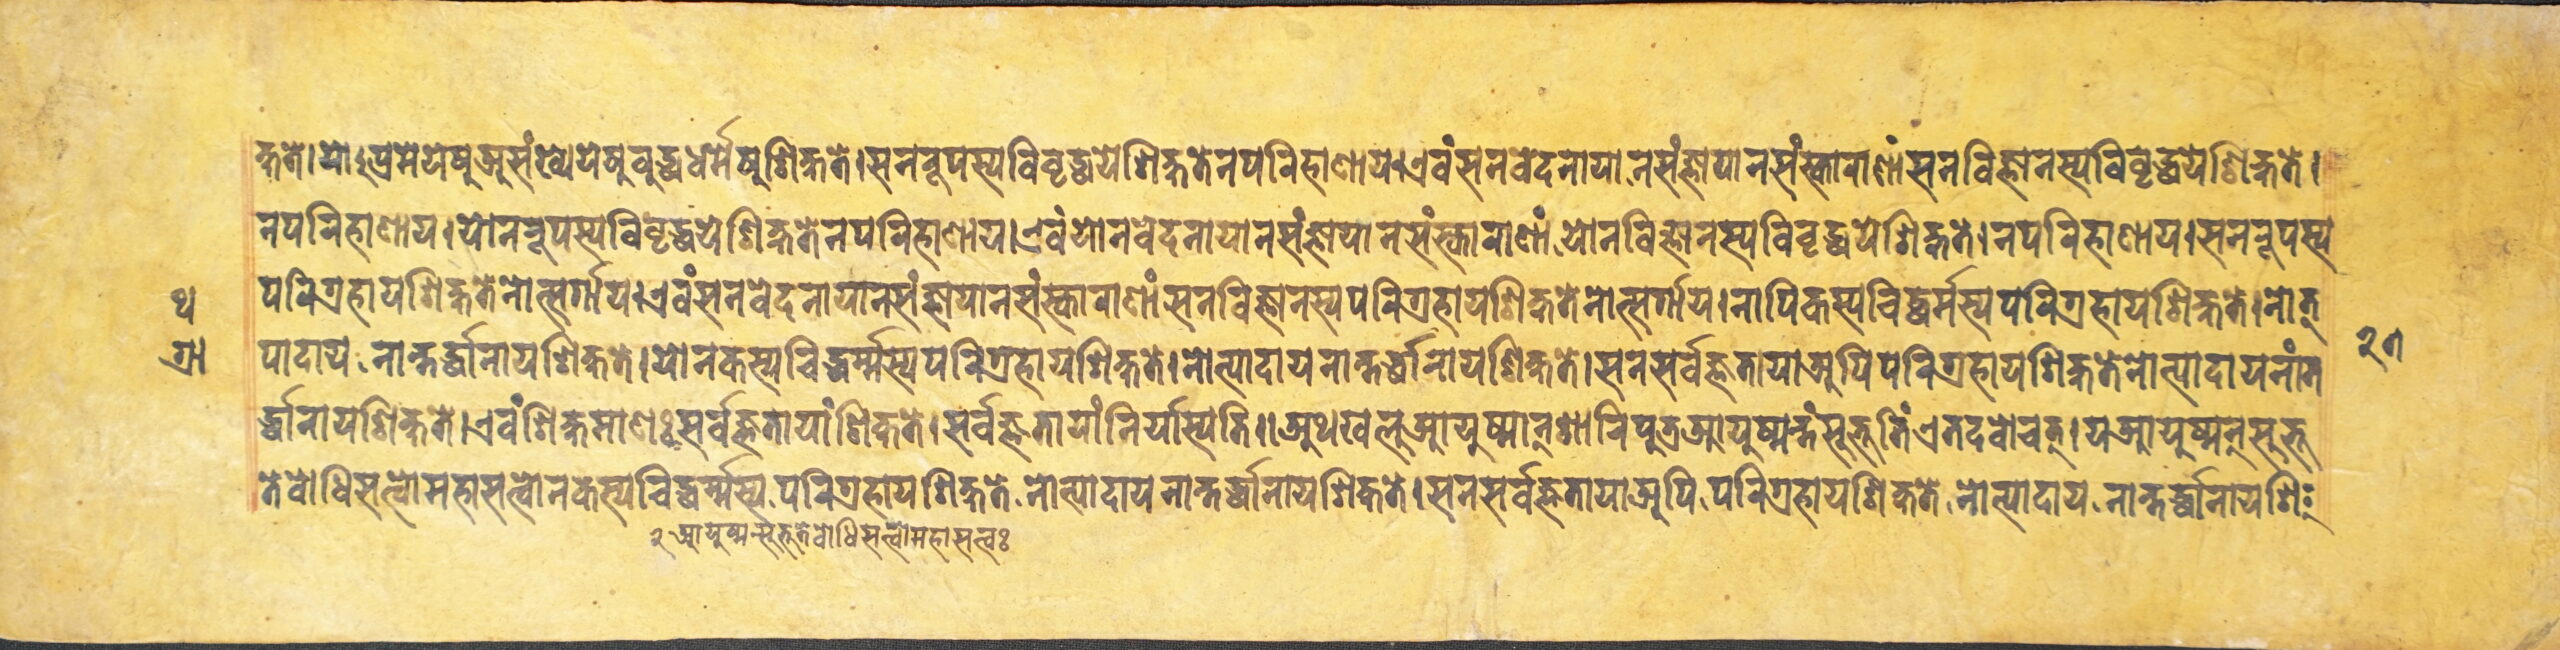 क्षते।योऽप्रमेयेषुअसंख्येयेअबुद्धधर्मेषुशिक्षते।सनरूपस्यविवृद्धयेशिक्षतेनपरिहाणाय।एवंसनवेदनायानसंज्ञायानसंस्काराणांसनविज्ञानस्यविवृद्धयेशिक्षते।
नपरिहाणाय।योनरूपस्यविवृद्धयेशिक्षतेनपरिहाणाय।एवंयोनवेदनायानसंज्ञायानसंस्काराणांयोनविज्ञानस्यविवृद्धयेशिक्षते।नपरिहाणाय।सनरूपस्य
परिग्रहायशिक्षतेनोत्सर्गाय।एवंसनवेदनायानसंज्ञायानसंस्काराणांसनविज्ञानस्यपरिग्रहायशिक्षतेनोत्सर्गाय।नापिकस्यचिद्धर्मस्यपरिग्रहायशिक्षते।नोत्
पादाय नान्तर्द्धानायशिक्षते।योनकस्यचिद्धर्म्मस्यपरिग्रहायशिक्षते।नोत्पादायनान्तर्द्धानायशिक्षते।सनसर्वज्ञतायाअपिपरिग्रहायशिक्षतेनोत्पादायनांत
र्द्धानायशिक्षते।एवंशिक्षमाणःसर्वज्ञतायांशिक्षते।सर्वज्ञतायांनिर्यास्यति॥अथखलुआयुष्मान्शारिपुत्रआयुष्मन्तंसुभूतिंएतदवोचत्।यआयुष्मन्सुभू
तेबोधिसत्वोमहासत्वोनकस्यचिद्धर्म्मस्य परिग्रहायशिक्षते नोत्पादायनान्तर्द्धानायशिक्षते।सनसर्वज्ञतायाअपि परिग्रहायशिक्षते नोत्पादाय नान्तर्द्धानायशिः
२ आयुष्मन्सुभूतेबोधिसत्वोमहासत्वः
थ
ग्रा
२१